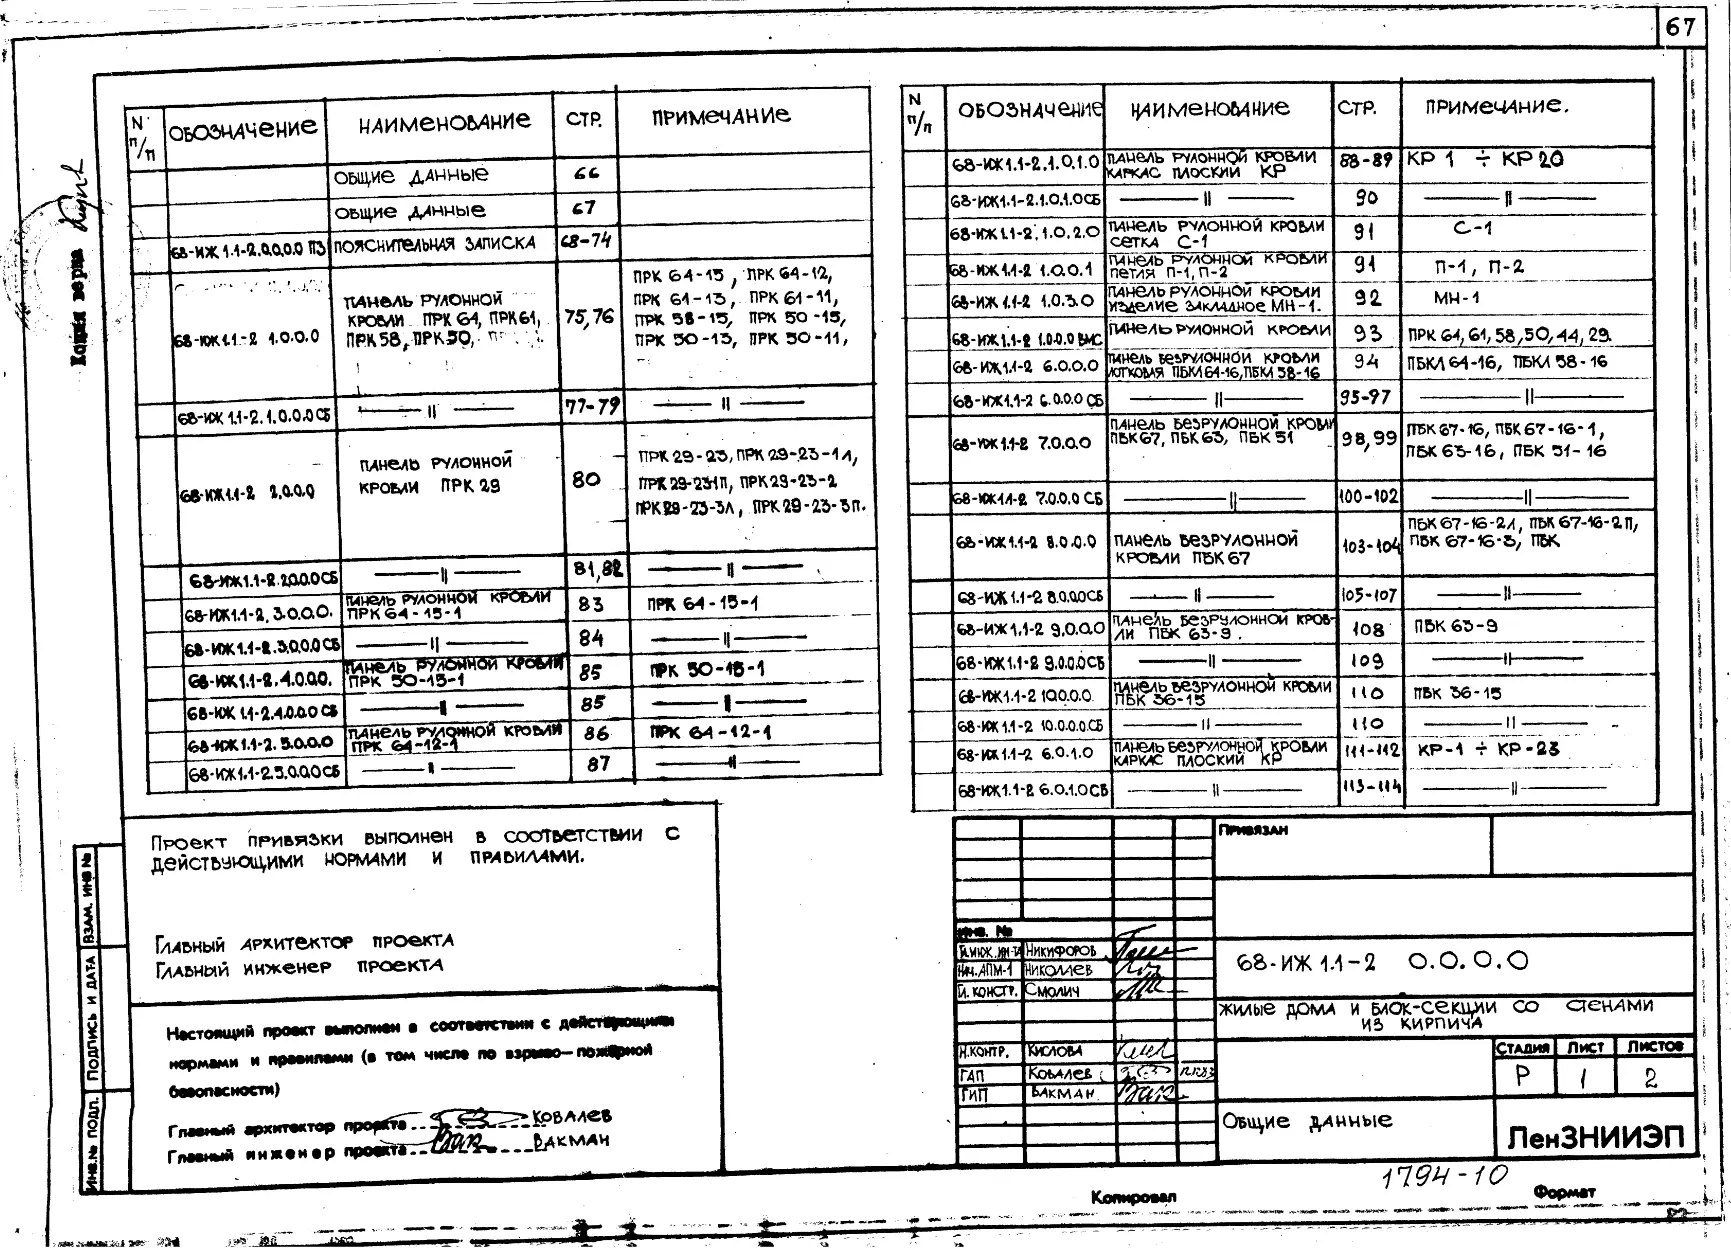 67
Копия верна
N п/п ОБОЗНАЧЕНИЕ НАИМЕНОВАНИЕ СТР. ПРИМЕЧАНИЕ
ОБЩИЕ ДАННЫЕ 66
ОБЩИЕ ДАННЫЕ 67
68-ИЖ 1.1-2.0.0.0.0 ПЗ ПОЯСНИТЕЛЬНАЯ ЗАПИСКА 68-74
68-ИЖ 1.1-2 1.0.0.0 ПАНЕЛЬ РУЛОННОЙ КРОВЛИ ПРК 64, ПРК 61, ПРК 58, ПРК 50, 75,76
ПРК 64-15, ПРК 64-12,
ПРК 61-15, ПРК 61-11,
ПРК 58-15, ПРК 50-15,
ПРК 50-13, ПРК 50-11,
68-ИЖ 1.1-2.1.0.0.0 СБ —〃— 77-79 —〃—
68-ИЖ 1.1-2 2.0.0.0 ПАНЕЛЬ РУЛОННОЙ КРОВЛИ ПРК 29 80
ПРК 29-23, ПРК 29-23-1Л,
ПРК 29-23-1П, ПРК 29-23-2
ПРК 29-23-3Л, ПРК 29-23-3П.
68-ИЖ 1.1-2.2.0.0.0 СБ —〃— 81,82 —〃—
68-ИЖ 1.1-2. 3.0.0.0. ПАНЕЛЬ РУЛОННОЙ КРОВЛИ ПРК 64-15-1 83 ПРК 64-15-1
68-ИЖ 1.1-2.3.0.0.0 СБ —〃— 84 —〃—
68-ИЖ 1.1-2.4.0.0.0. ПАНЕЛЬ РУЛОННОЙ КРОВЛИ ПРК 50-15-1 85 ПРК 50-15-1
68-ИЖ 1.1-2.4.0.0.0 СБ —〃— 85 —〃—
68-ИЖ 1.1-2. 5.0.0.0 ПАНЕЛЬ РУЛОННОЙ КРОВЛИ ПРК 64-12-1 86 ПРК 64-12-1
68-ИЖ 1.1-2.5.0.0.0 СБ —〃— 87 —〃—
N п/п ОБОЗНАЧЕНИЕ НАИМЕНОВАНИЕ СТР. ПРИМЕЧАНИЕ.
68-ИЖ 1.1-2.1.0.1.0 ПАНЕЛЬ РУЛОННОЙ КРОВЛИ КАРКАС ПЛОСКИЙ КР 88-89 КР 1 ÷ КР 20
68-ИЖ 1.1-2.1.0.1.0 СБ —〃— 90 —〃—
68-ИЖ 1.1-2.1.0.2.0 ПАНЕЛЬ РУЛОННОЙ КРОВЛИ СЕТКА С-1 91 С-1
68-ИЖ 1.1-2 1.0.0.1 ПАНЕЛЬ РУЛОННОЙ КРОВЛИ ПЕТЛЯ П-1, П-2 91 П-1, П-2
68-ИЖ 1.1-2 1.0.3.0 ПАНЕЛЬ РУЛОННОЙ КРОВЛИ ИЗДЕЛИЕ ЗАКЛАДНОЕ МН-1. 92 МН-1
68-ИЖ 1.1-2 1.0.0.0 ВМС ПАНЕЛЬ РУЛОННОЙ КРОВЛИ 93 ПРК 64, 61, 58, 50, 44, 29.
68-ИЖ 1.1-2 6.0.0.0 ПАНЕЛЬ БЕЗРУЛОННОЙ КРОВЛИ ЛОТКОВАЯ ПБКЛ 64-16, ПБКЛ 58-16 94 ПБКЛ 64-16, ПБКЛ 58-16
68-ИЖ 1.1-2 6.0.0.0 СБ —〃— 95-97 —〃—
68-ИЖ 1.1-2 7.0.0.0 ПАНЕЛЬ БЕЗРУЛОННОЙ КРОВЛИ ПБК 67, ПБК 63, ПБК 51 98,99 ПБК 67-16, ПБК 67-16-1,
ПБК 63-16, ПБК 51-16
68-ИЖ 1.1-2 7.0.0.0 СБ —〃— 100-102 —〃—
68-ИЖ 1.1-2 8.0.0.0 ПАНЕЛЬ БЕЗРУЛОННОЙ КРОВЛИ ПБК 67 103-104 ПБК 67-16-2Л, ПБК 67-16-2П,
ПБК 67-16-3, ПБК
68-ИЖ 1.1-2 8.0.0.0 СБ —〃— 105-107 —〃—
68-ИЖ 1.1-2 9.0.0.0 ПАНЕЛЬ БЕЗРУЛОННОЙ КРОВЛИ ПБК 63-9. 108 ПБК 63-9
68-ИЖ 1.1-2 9.0.0.0 СБ —〃— 109 —〃—
68-ИЖ 1.1-2 10.0.0.0. ПАНЕЛЬ БЕЗРУЛОННОЙ КРОВЛИ ПБК 36-15 110 ПБК 36-15
68-ИЖ 1.1-2 10.0.0.0 СБ —〃— 110 —〃—
68-ИЖ 1.1-2 6.0.1.0 ПАНЕЛЬ БЕЗРУЛОННОЙ КРОВЛИ КАРКАС ПЛОСКИЙ КР 111-112 КР-1 ÷ КР-23
68-ИЖ 1.1-2 6.0.1.0 СБ —〃— 113-114 —〃—
ПРОЕКТ ПРИВЯЗКИ ВЫПОЛНЕН В СООТВЕТСТВИИ С
ДЕЙСТВУЮЩИМИ НОРМАМИ И ПРАВИЛАМИ.
ГЛАВНЫЙ АРХИТЕКТОР ПРОЕКТА
ГЛАВНЫЙ ИНЖЕНЕР ПРОЕКТА
Настоящий проект выполнен в соответствии с действующими
нормами и правилами (в том числе по взрыво-пожарной
безопасности)
Главный архитектор проекта КОВАЛЕВ
Главный инженер проекта ВАКМАН
ИНВ.№ ПОДЛ. ПОДПИСЬ И ДАТА ВЗАМ. ИНВ №
ПРИВЯЗАН
ИНВ. №
ГЛ.ИНЖ.ИН-ТА НИКИФОРОВ
НАЧ.АПМ-1 НИКОЛАЕВ
ГЛ. КОНСТР. СМОЛИЧ
Н.КОНТР. КИСЛОВА
ГАП КОВАЛЕВ
ГИП ВАКМАН
68-ИЖ 1.1-2 0.0.0.0
ЖИЛЫЕ ДОМА И БЛОК-СЕКЦИИ СО СТЕНАМИ
ИЗ КИРПИЧА
СТАДИЯ ЛИСТ ЛИСТОВ
Р 1 2
ОБЩИЕ ДАННЫЕ
ЛенЗНИИЭП
1794-10
Копировал Формат